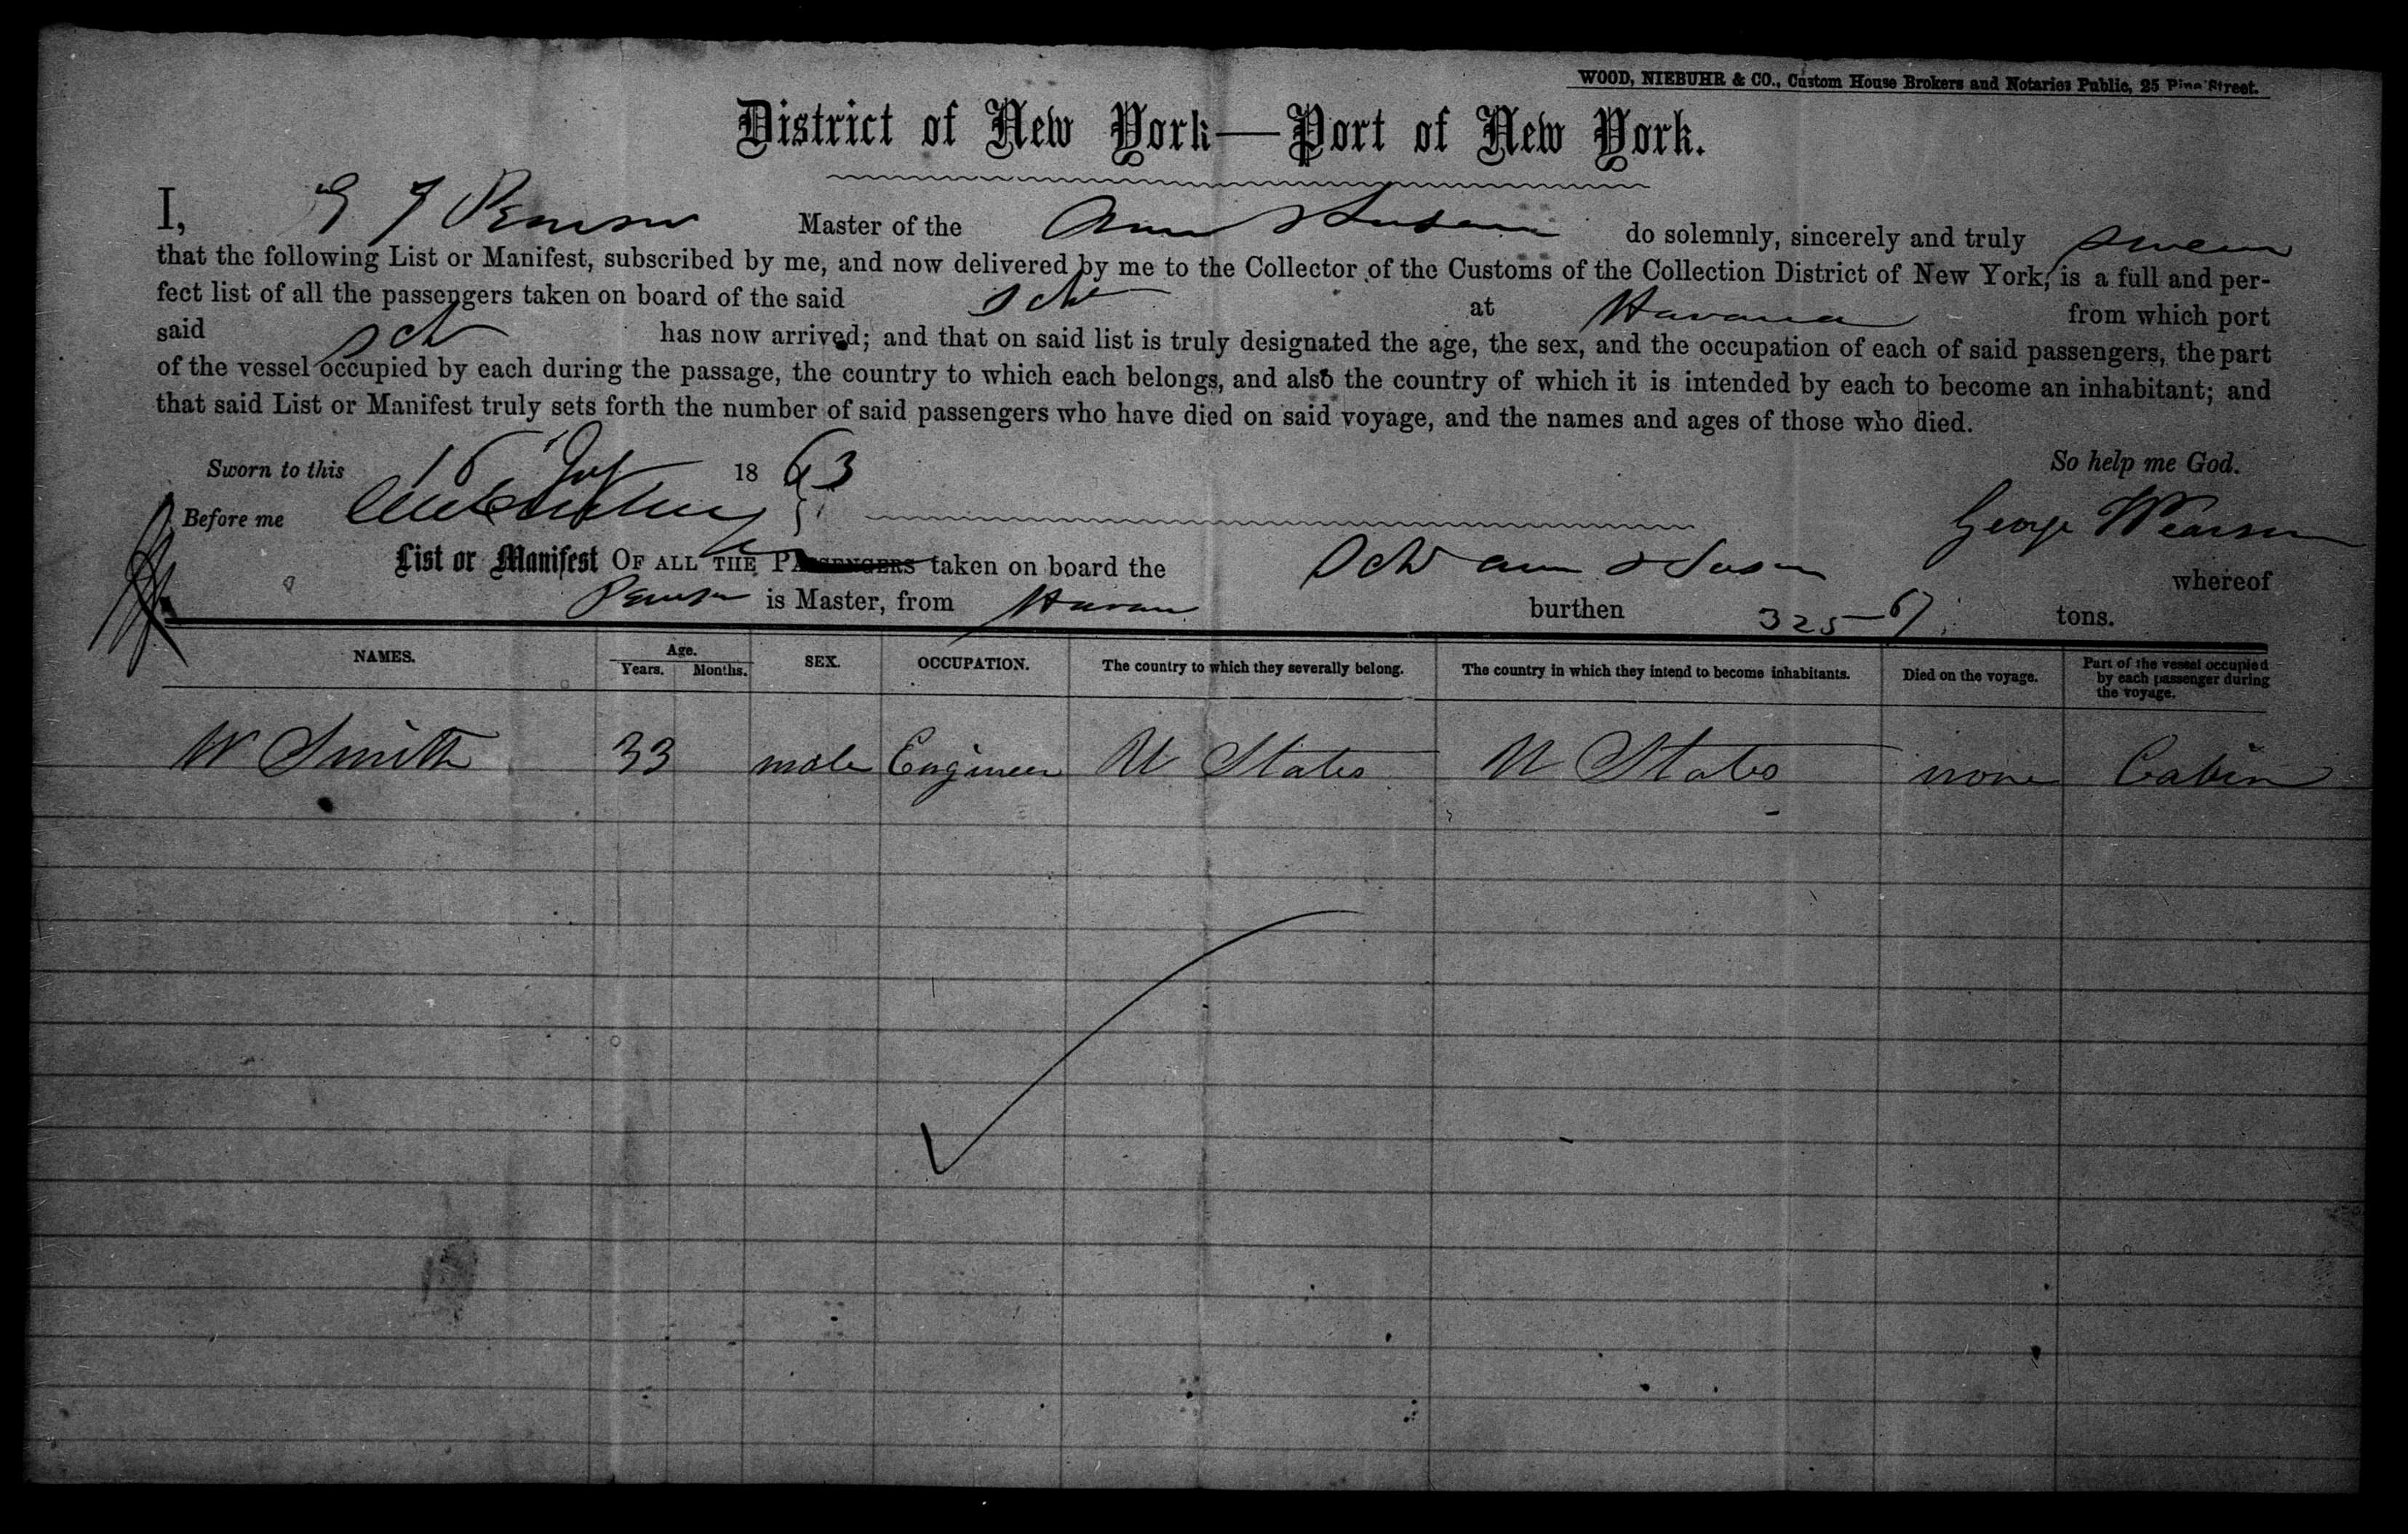 WOOD, NIEBUHR & CO., Custom House Brokers and Notaries Public, 25 Pine Street.
District of New York—Port of New York.
I, Master of the Ann & Susan do solemnly, sincerely and truly swear
that the following List or Manifest, subscribed by me, and now delivered by me to the Collector of the Customs of the Collection District of New York, is a full and per-
fect list of all the passengers taken on board of the said Sch at Havana from which port
said Sch has now arrived; and that on said list is truly designated the age, the sex, and the occupation of each of said passengers, the part
of the vessel occupied by each during the passage, the country to which each belongs, and also the country of which it is intended by each to become an inhabitant; and
that said List or Manifest truly sets forth the number of said passengers who have died on said voyage, and the names and ages of those who died.
Sworn to this 1863 So help me God.
Before me George
List or Manifest OF ALL THE PASSENGERS taken on board the Sch Ann & Susan whereof
is Master, from Havana burthen 325 tons.
NAMES. Age. Years. Months. SEX. OCCUPATION. The country to which they severally belong. The country in which they intend to become inhabitants. Died on the voyage. Part of the vessel occupied by each passenger during the voyage.
W Smith 33 male Engineer U States U States none Cabin